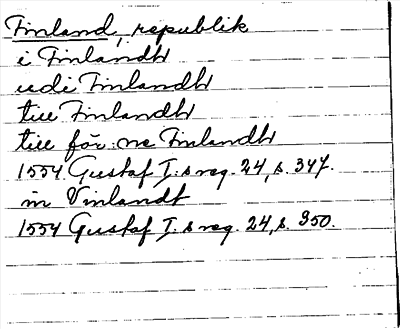 Finland, republik
i Finlandh
udi Finlandh
till Finlandh
till för:ne Finlandh
1554 Gustaf I:s reg. 24, s. 347.
in Vinlandt
1554 Gustaf I:s reg. 24, s. 350.